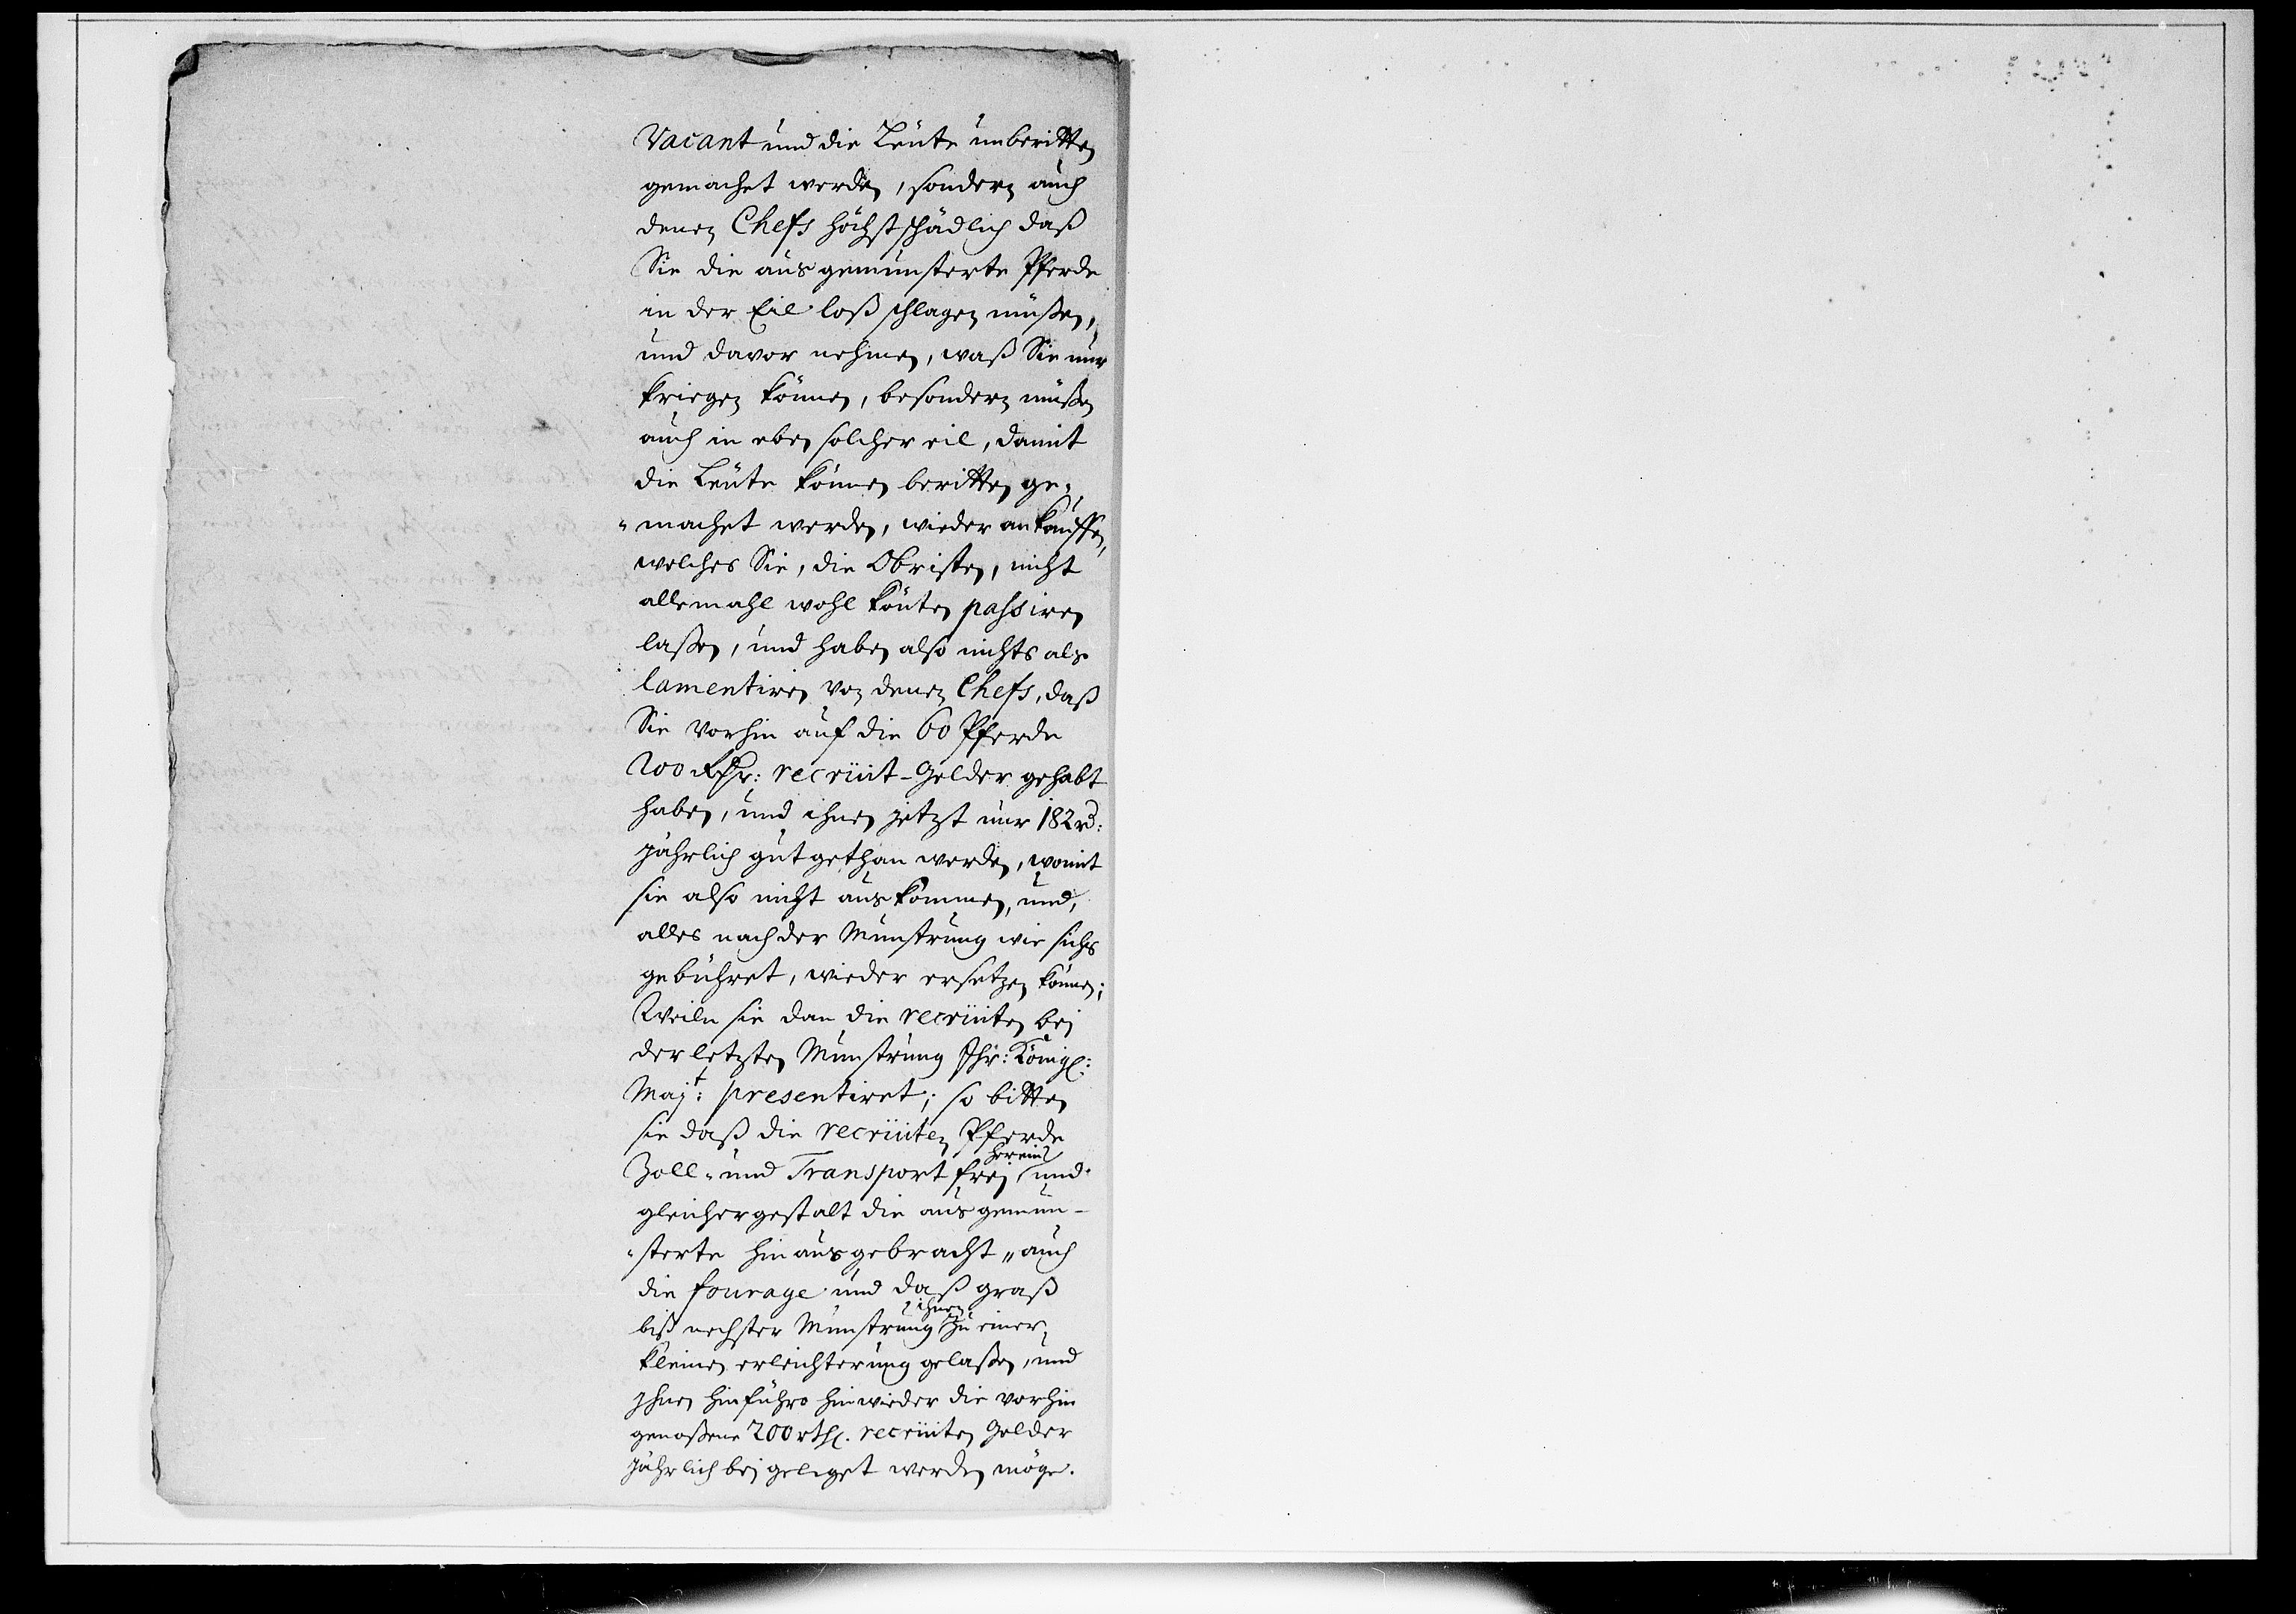 Vacant und die Leüte unberitten
gemachet werden, sondern auch
denen Chefs höchst schädlich daß
Sie die aus gemünsterte Pferde
in der Eil loß schlagen müßen,
und davor nehmen, waß Sie nur
kriegen können, besondern müßen
auch in eben solcher eil, damit
die Leüte können beritten ge-
machet werden, wieder ankauffen,
welches Sie, die Obristen, nicht
allemahl wohl könten passiren
laßen, und haben also nichts als
lamentiren von denen Chefs, daß
Sie vorhin auf die 60 Pferde
200 Rthr: recrüit-Gelder gehabt
haben, und ihnen jetzt nur 182 rd:
jährlich gut gethan werden, womit
sie also nicht aus kommen, und,
alles nach der Münstrung wie sichs
gebühret, wieder ersetzen können;
Weiln sie dan die recrüiten bei
der letzten Münstrung Ihr: Königl:
Majt: presentiret; so bitten
sie daß die recrüiten Pferde
Zoll- und Transport frej herein und
gleichergestalt die aus gemün-
sterte hinaus gebracht, auch
die fourage und daß graß
biß nechster Münstrung ihnen zu einer
kleinen erleichterung gelaßen, und
Ihnen hinführo hinwieder die vorhin
genoßene 200 rthl. recrüiten Gelder
jährlich bej geleget werden möge.